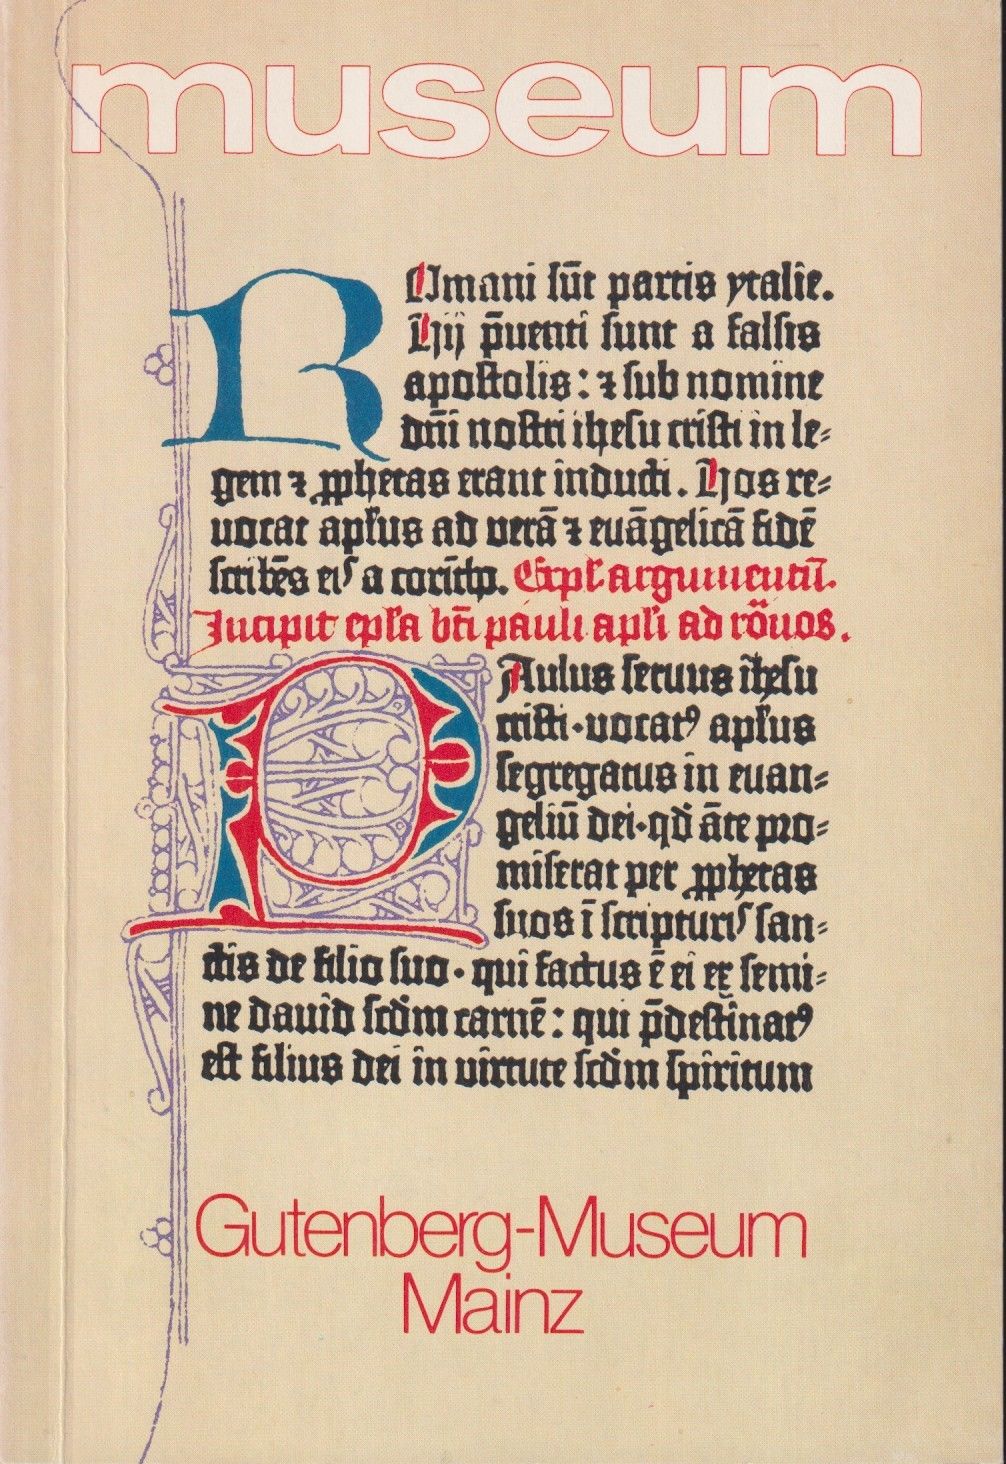 museum
ROmani sūt partis ytalie.
Hij p̄uenti sunt a falsis
apostolis: ⁊ sub nomine
dn̄i nostri ihesu cristi in le⸗
gem ⁊ ꝓphetas erant inducti. Hos re⸗
uocat apl'us ad verā ⁊ euāgelicā fidē
scribēs eis a corintho. Expl' argumentū.
Incipit epl'a bt̄i pauli apl'i ad rōnos.
PAulus seruus ihesu
cristi·uocatꝰ apl'us
segregatus in euan⸗
geliū dei·qd̄ āte pro⸗
miserat per ꝓphetas
suos ī scripturis san⸗
ctis de filio suo·qui factus ē ei ex semi⸗
ne dauid scd̄m carnē: qui p̄destinatꝰ
est filius dei in virtute scd̄m spiritum
Gutenberg-Museum
Mainz